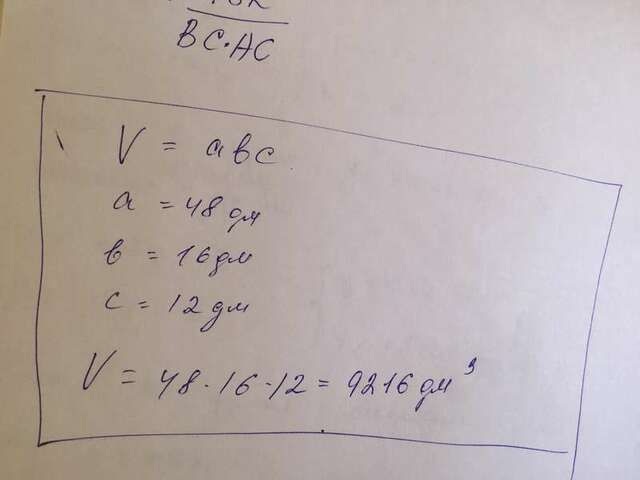 BC·AC
V = abc
a = 48 дм
b = 16 дм
c = 12 дм
V = 48·16·12 = 9216 дм³